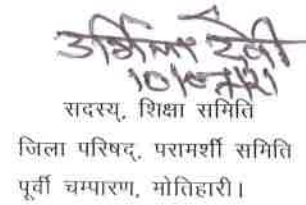 उर्मिला देवी
सदस्य, शिक्षा समिति
जिला परिषद्, परामर्शी समिति
पूर्वी चम्पारण, मोतिहारी।